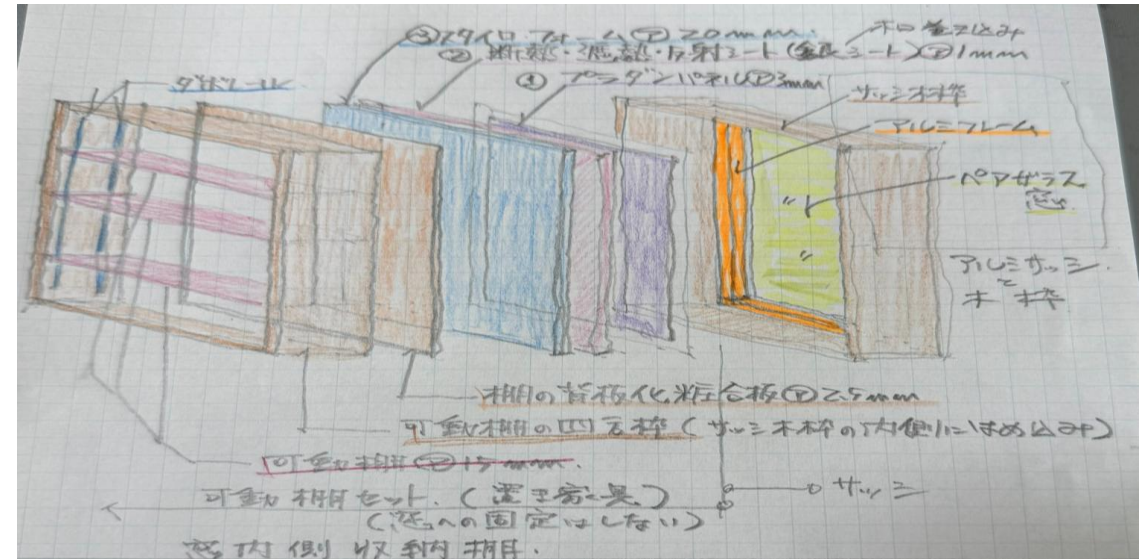 ③スタイロフォーム Ⓣ20mm
② 断熱・遮熱・反射シート(銀シート)Ⓣ1mm
① プラダンパネルⓉ3mm
ダボレール
サッシ木枠
アルミフレーム
ペアガラス
窓
アルミサッシ
と
木枠
棚の背板化粧合板Ⓣ2.5mm
可動棚の四方枠(サッシ木枠の内側にはめ込み)
可動棚Ⓣ15mm.
可動棚セット.(置き家具)
サッシ
(窓への固定はしない)
窓内側収納棚.